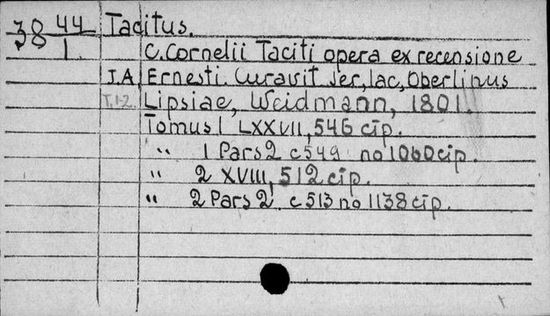 38 44/1. Tacitus.
C. Cornelii Taciti opera ex recensione
J.A. Ernesti. Curavit Jer, Iac, Oberlinus
T.1-2. Lipsiae, Weidmann, 1801.
Tomus 1 LXXVII, 546 cīp.
" 1 Pars 2 c 549 no 1060 cīp.
" 2 XVIII, 512 cīp.
" 2 Pars 2. c 513 no 1138 cīp.